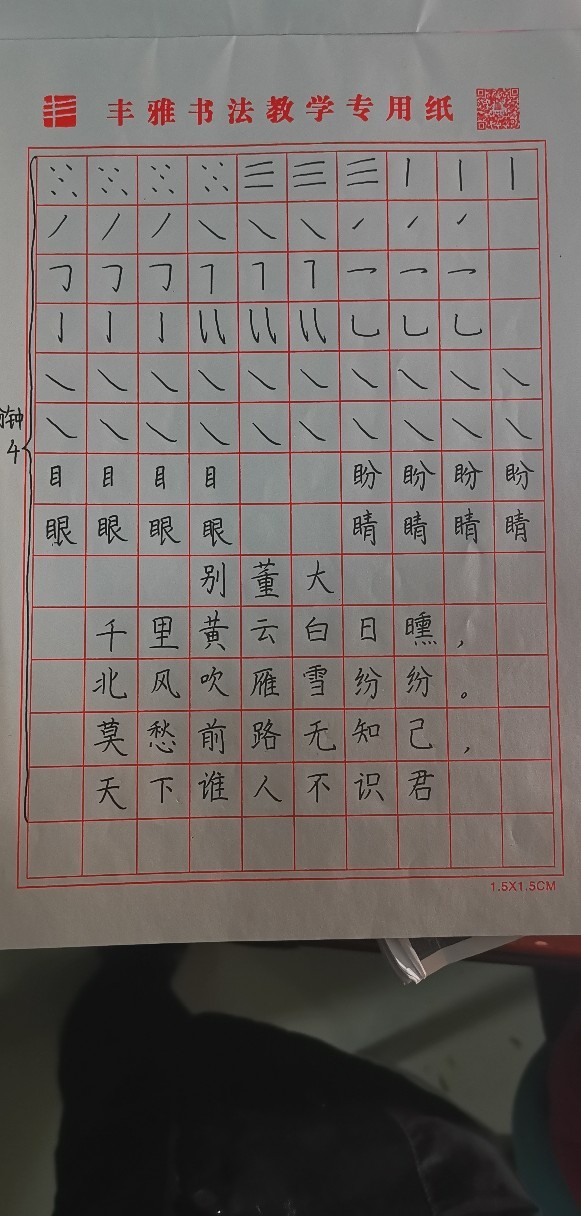 丰雅书法教学专用纸
钟
4
目 目 目 目 盼 盼 盼 盼
眼 眼 眼 眼 睛 睛 睛 睛
别董大
千里黄云白日曛，
北风吹雁雪纷纷。
莫愁前路无知己，
天下谁人不识君
1.5X1.5CM